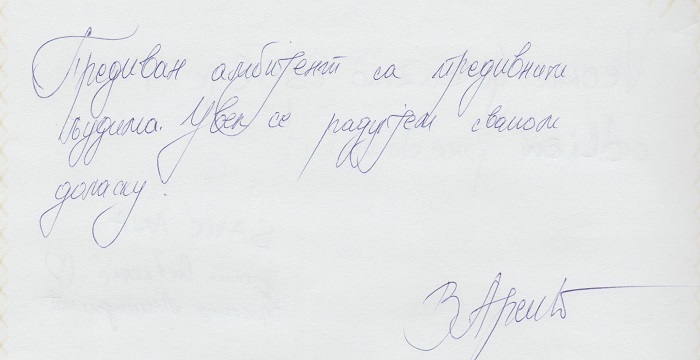 Предиван амбијент са предивним
људима. Увек се радујем сваком
доласку.